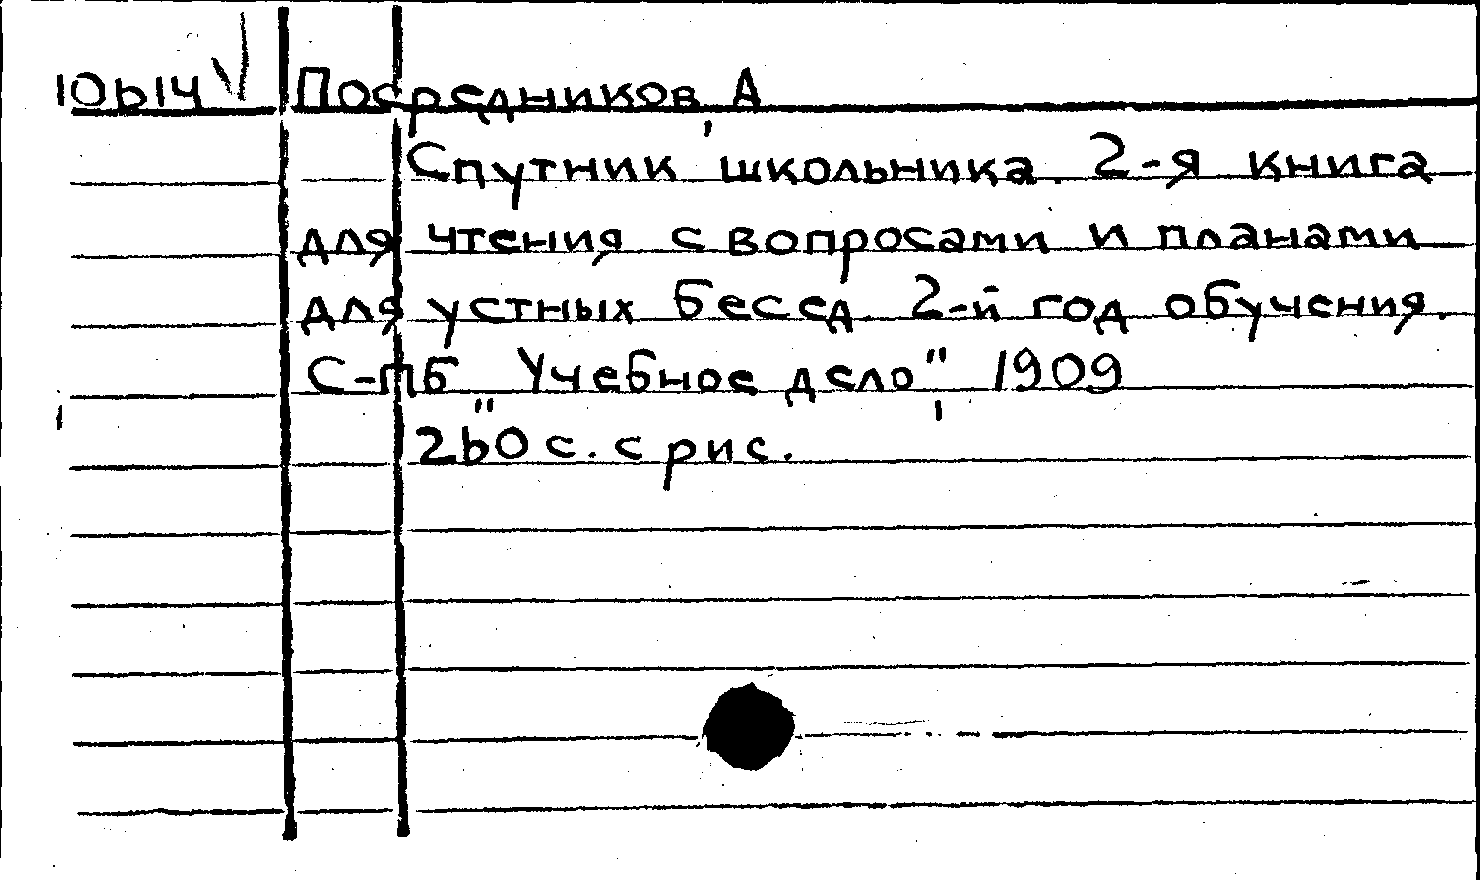 10614 Посредников, А
Спутник школьника. 2-я книга
для чтения с вопросами и планами
для устных бесед. 2-й год обучения.
С-ПБ „Учебное дело", 1909
260 с. с рис.